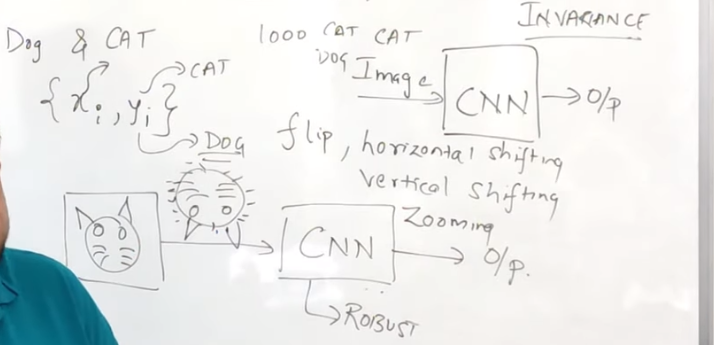 INVARIANCE
Dog & CAT
1000 CAT CAT
DOG
Image
CNN → O/p
{xi, yi}
CAT
DOG
flip, horizontal shifting
vertical shifting
Zooming
CNN → O/p.
ROBUST